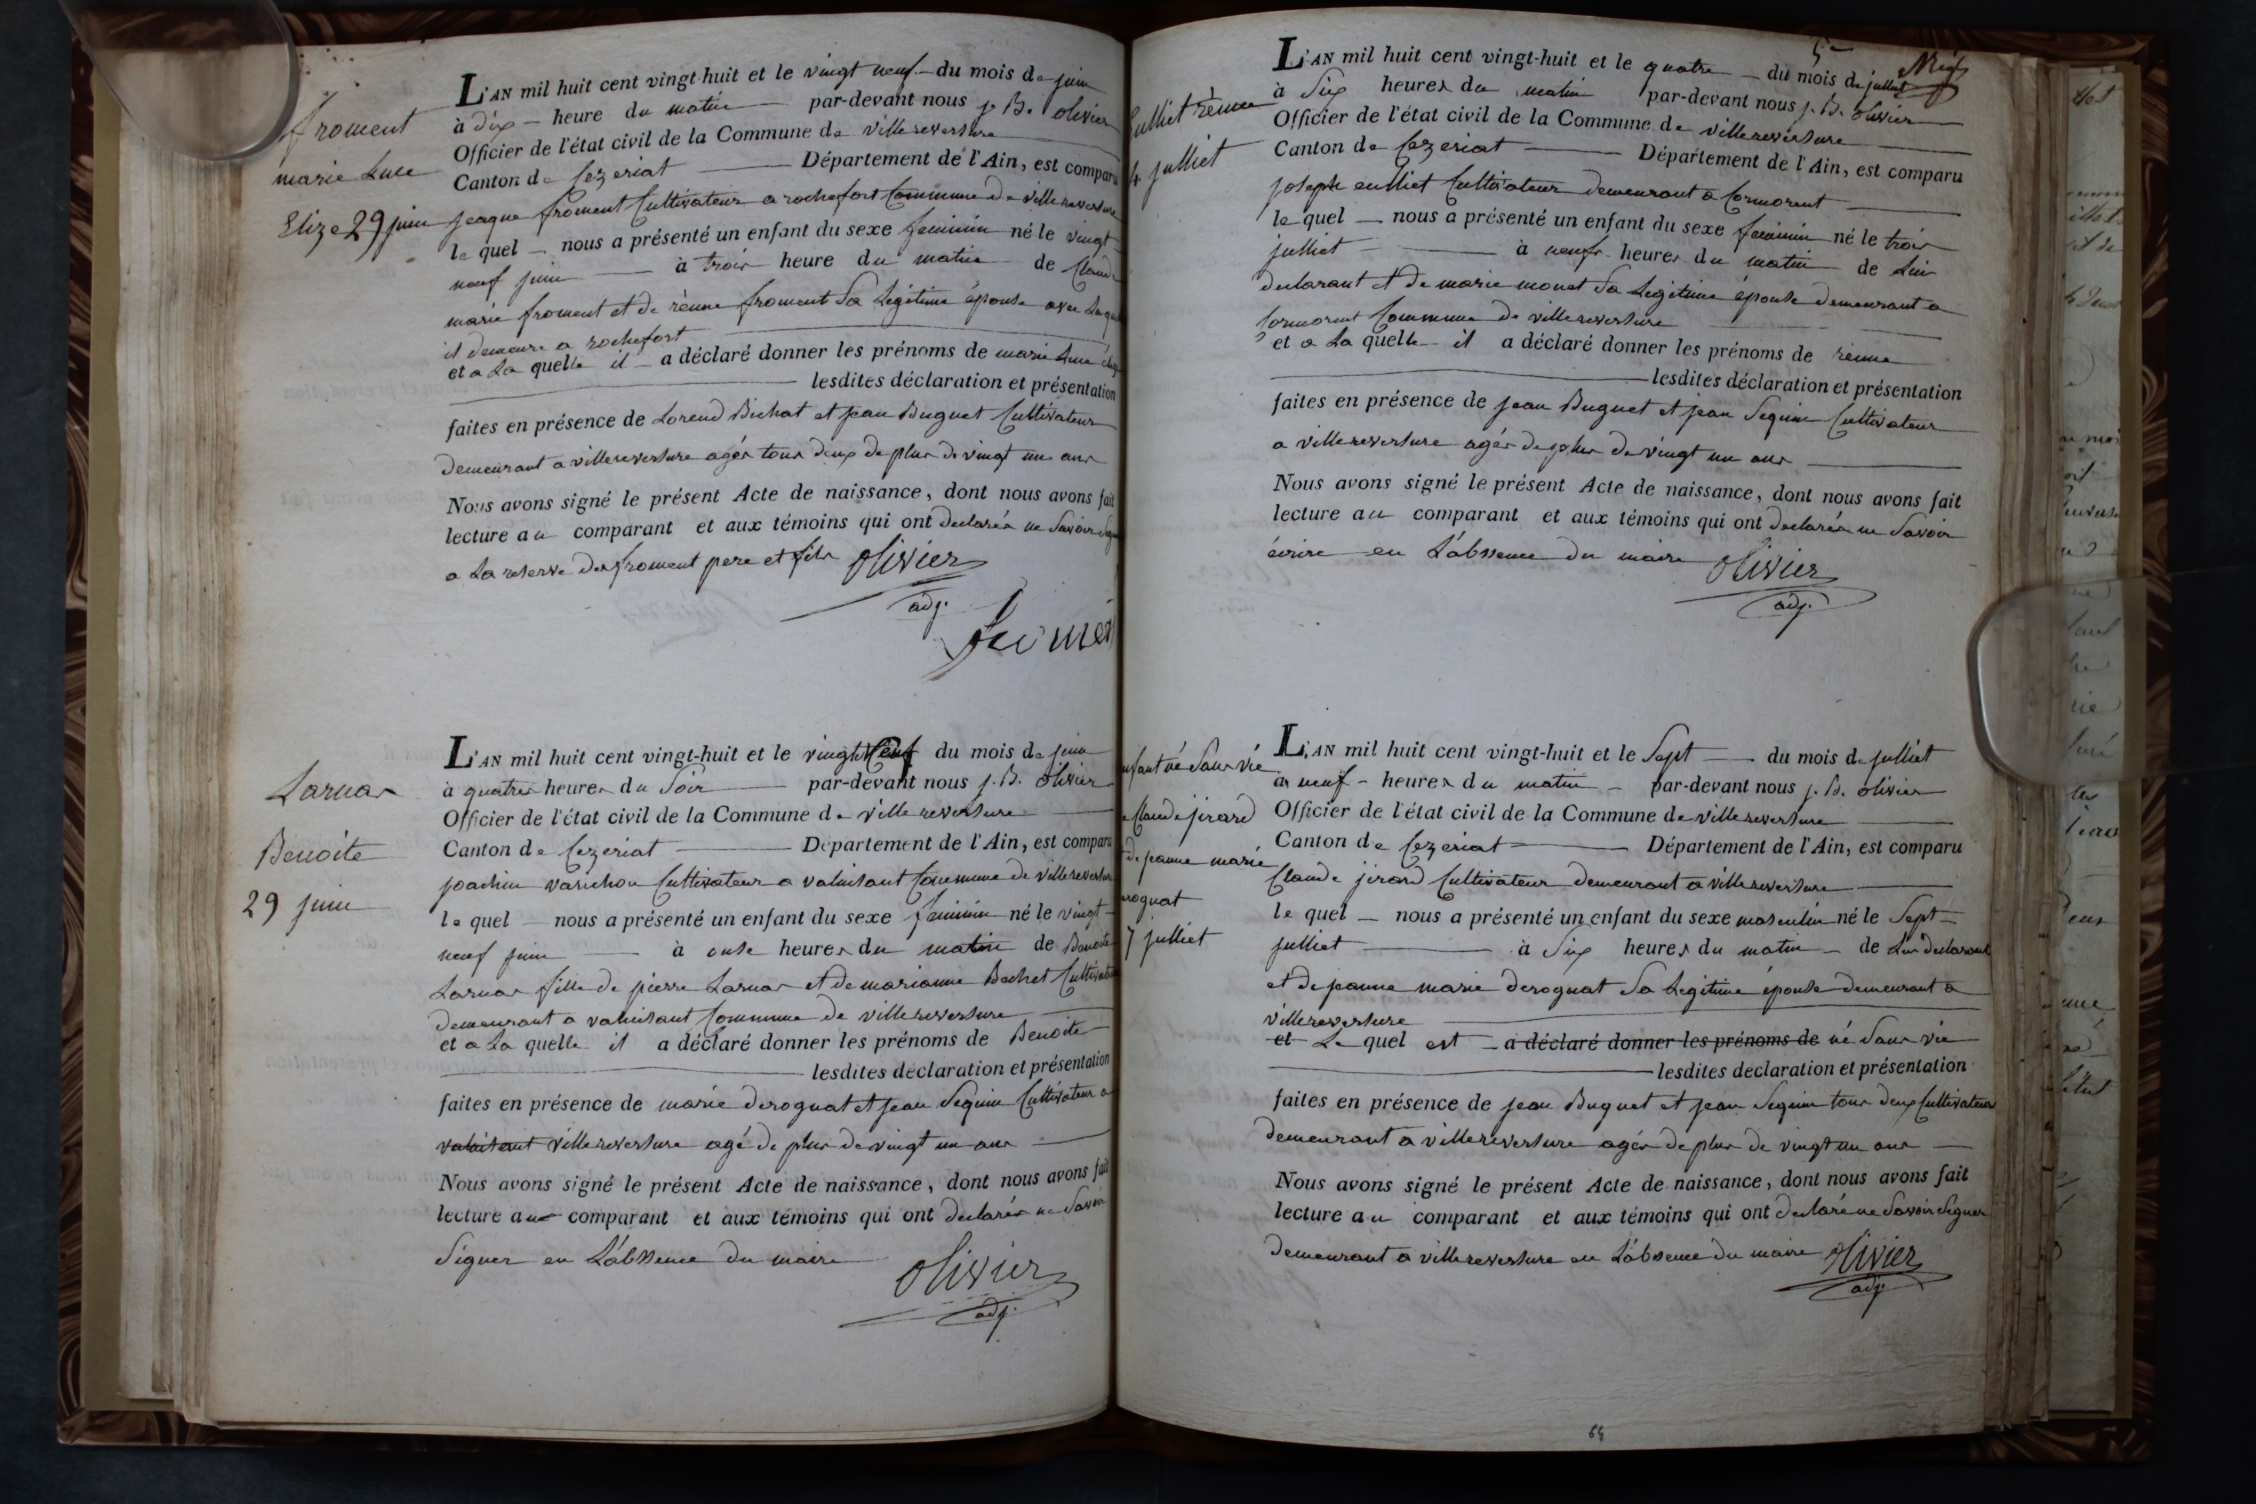 froment
marie Luce
Elize 29 juin
L'AN mil huit cent vingt-huit et le vingt neuf du mois de juin
à dix heure du matin par-devant nous j. B. olivier
Officier de l'état civil de la Commune de villereversure
Canton de Cezeriat Département de l'Ain, est comparu
jeaque froment Cultivateur a rochefort Commune de villereversure
le quel nous a présenté un enfant du sexe feminin né le vingt
neuf juin à trois heure du matin de Claude
marie froment et de rènne froment Sa Legitime épouse avec Laquelle
il demeure a rochefort
et a La quelle il a déclaré donner les prénoms de marie Luce
lesdites déclaration et présentation
faites en présence de Lorend Bichat et jean Buguet Cultivateur
demeurant a villereversure agés tous deux de plus de vingt un ans
Nous avons signé le présent Acte de naissance, dont nous avons fait
lecture au comparant et aux témoins qui ont declarés ne Savoir
a La reserve des froment pere et fils olivier
adj.
Larnas
Benoite
29 juin
L'AN mil huit cent vingt-huit et le vingt neuf du mois de juin
à quatres heures du Soir par-devant nous j. B. olivier
Officier de l'état civil de la Commune de villereversure
Canton de Cezeriat Département de l'Ain, est comparu
joachim varichon Cultivateur a valuisant Commune de villereversure
le quel nous a présenté un enfant du sexe feminin né le vingt
neuf juin à onse heures du matin de Benoite
Larnas fille de pierre Larnas et de marianne Bochet Cultivateur
demeurant a valuisant Commune de villereversure
et a La quelle il a déclaré donner les prénoms de Benoite
lesdites déclaration et présentation
faites en présence de marie deroguat et jean Seguin Cultivateur a
valuisant villereversure agé de plus de vingt un ans
Nous avons signé le présent Acte de naissance, dont nous avons fait
lecture au comparant et aux témoins qui ont declarés ne Savoir
Signer en L'abssence du maire
olivier
adj.
Culliet rènne
4 julliet
L'AN mil huit cent vingt-huit et le quatre du mois de julliet
à Six heures du matin par-devant nous j. B. olivier
Officier de l'état civil de la Commune de villereversure
Canton de Cezeriat Département de l'Ain, est comparu
joseph culliet Cultivateur demeurant a Cormorent
le quel nous a présenté un enfant du sexe feminin né le trois
julliet à neufs heures du matin de Lui
declarant et de marie monet Sa Legitime épouse demeurant a
Cormorent Commune de villereversure
et a La quelle il a déclaré donner les prénoms de rènne
lesdites déclaration et présentation
faites en présence de jean Buguet et jean Seguin Cultivateur
a villereversure agés de plus de vingt un ans
Nous avons signé le présent Acte de naissance, dont nous avons fait
lecture au comparant et aux témoins qui ont declarés ne Savoir
écrire en L'abssence du maire olivier
adj.
enfant né Sans vie
de Claude jirard
et de jeanne marie
deroguat
7 julliet
L'AN mil huit cent vingt-huit et le Sept du mois de julliet
à neuf heures du matin par-devant nous j. B. olivier
Officier de l'état civil de la Commune de villereversure
Canton de Cezeriat Département de l'Ain, est comparu
Claude jirard Cultivateur demeurant a villereversure
le quel nous a présenté un enfant du sexe masculin né le Sept
julliet à Six heures du matin de Lui declarant
et de jeanne marie deroguat Sa Legitime épouse demeurant a
villereversure
et Le quel est a déclaré donner les prénoms de né Sans vie
lesdites declaration et présentation
faites en présence de jean Buguet et jean Seguin tous deux Cultivateurs
demeurant a villereversure agés de plus de vingt un ans
Nous avons signé le présent Acte de naissance, dont nous avons fait
lecture au comparant et aux témoins qui ont declaré ne Savoir Signer
demeurant a villereversure en L'abssence du maire olivier
adj.
64